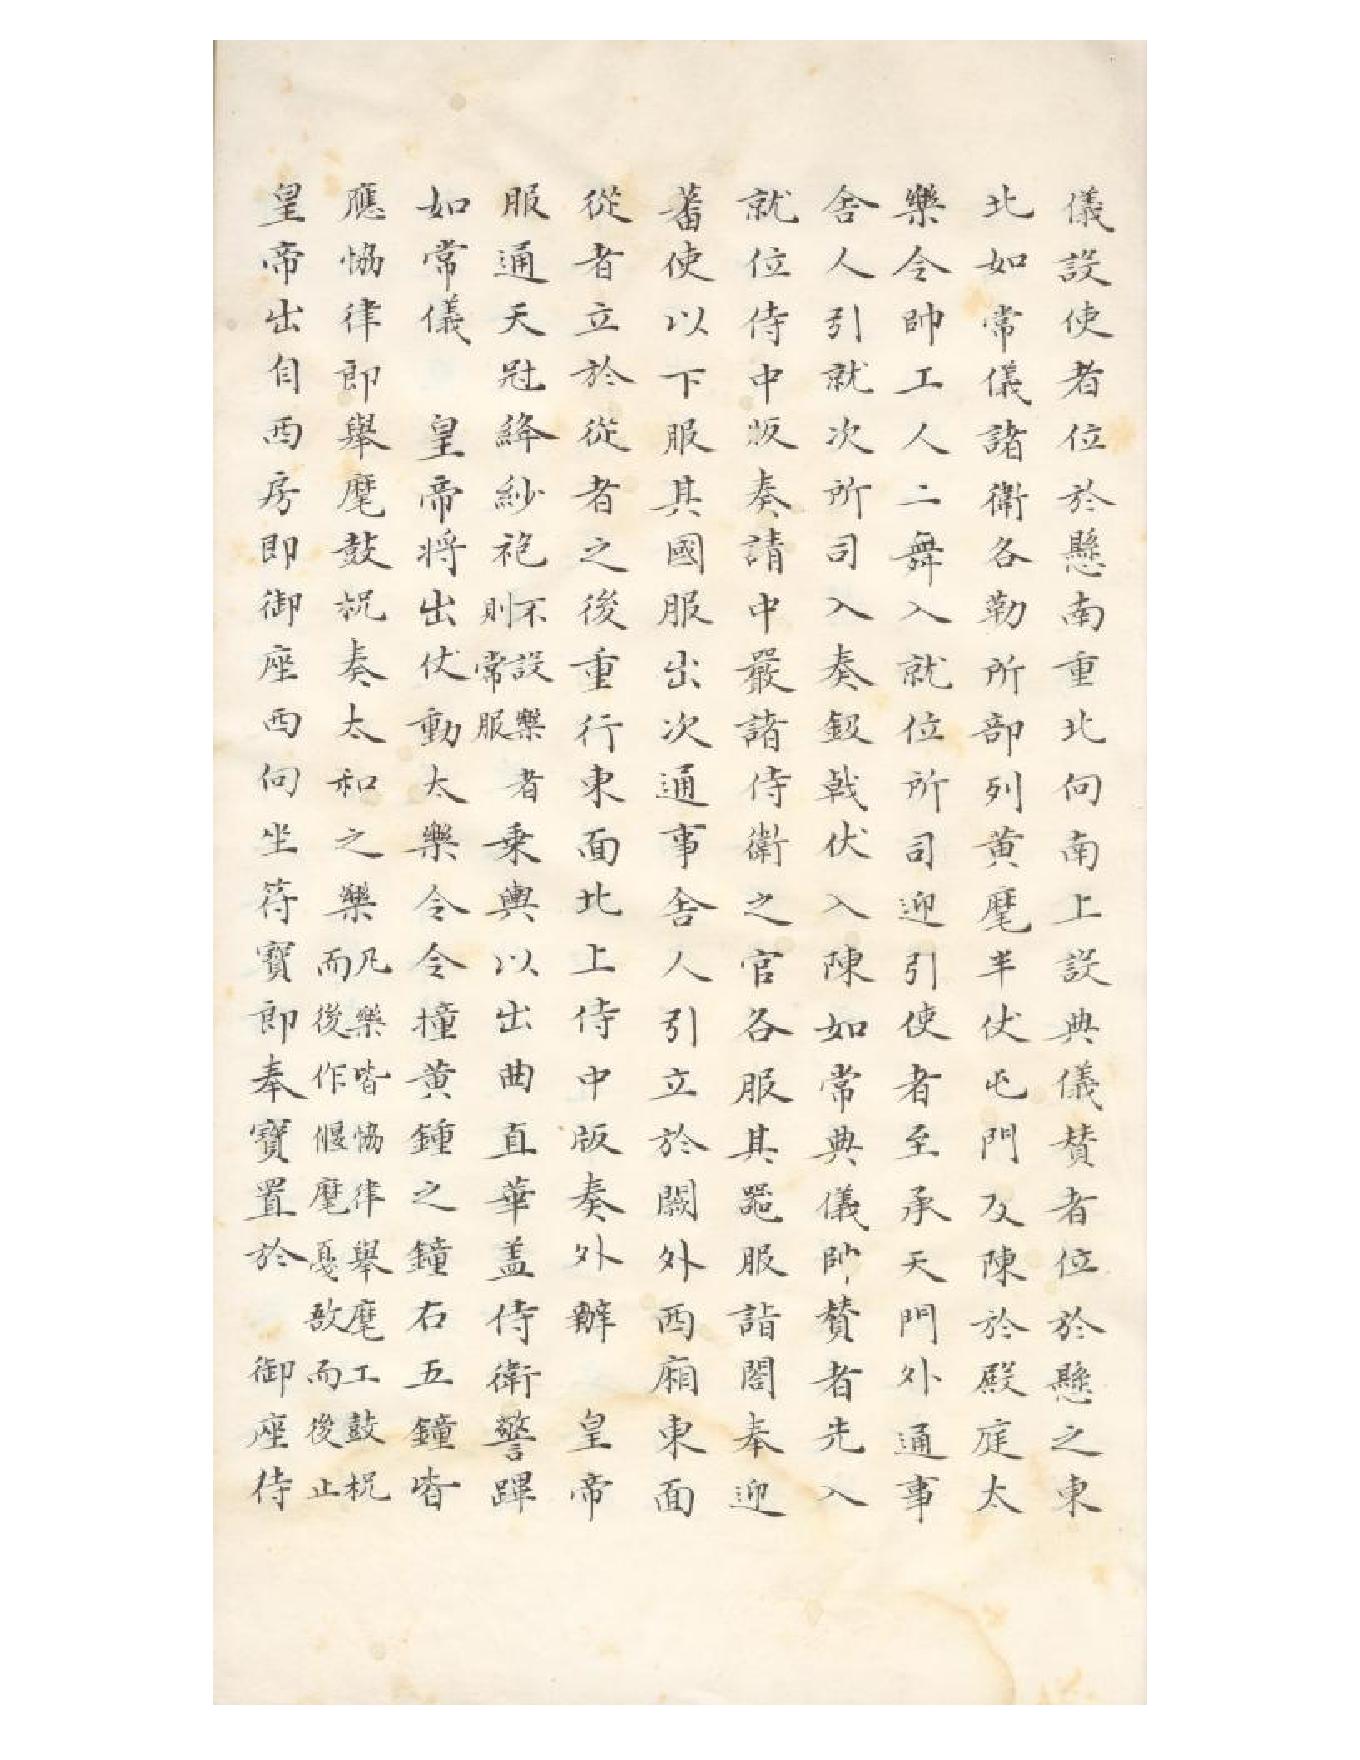 儀設使者位於懸南重北向南上設典儀贊者位於懸之東
北如常儀諸衛各勒所部列黄麾半仗屯門及陳於殿庭太
樂令帥工人二舞入就位所司迎引使者至承天門外通事
舍人引就次所司入奏鈒戟伏入陳如常典儀帥贊者先入
就位侍中版奏請中嚴諸侍衛之官各服其器服詣閤奉迎
蕃使以下服其國服出次通事舍人引立於闕外西廂東面
從者立於從者之後重行東面北上侍中版奏外辦 皇帝
服通天冠絳紗袍不設樂則常服者乗輿以出曲直華盖侍衛警蹕
如常儀 皇帝将出仗動太樂令令撞黄鍾之鐘右五鐘皆
應恊律郎舉麾鼓柷奏太和之樂凡樂皆恊律舉麾工鼓柷而後作偃麾戛敔而後止
皇帝出自西房即御座西向坐符寶郎奉寶置於 御座侍